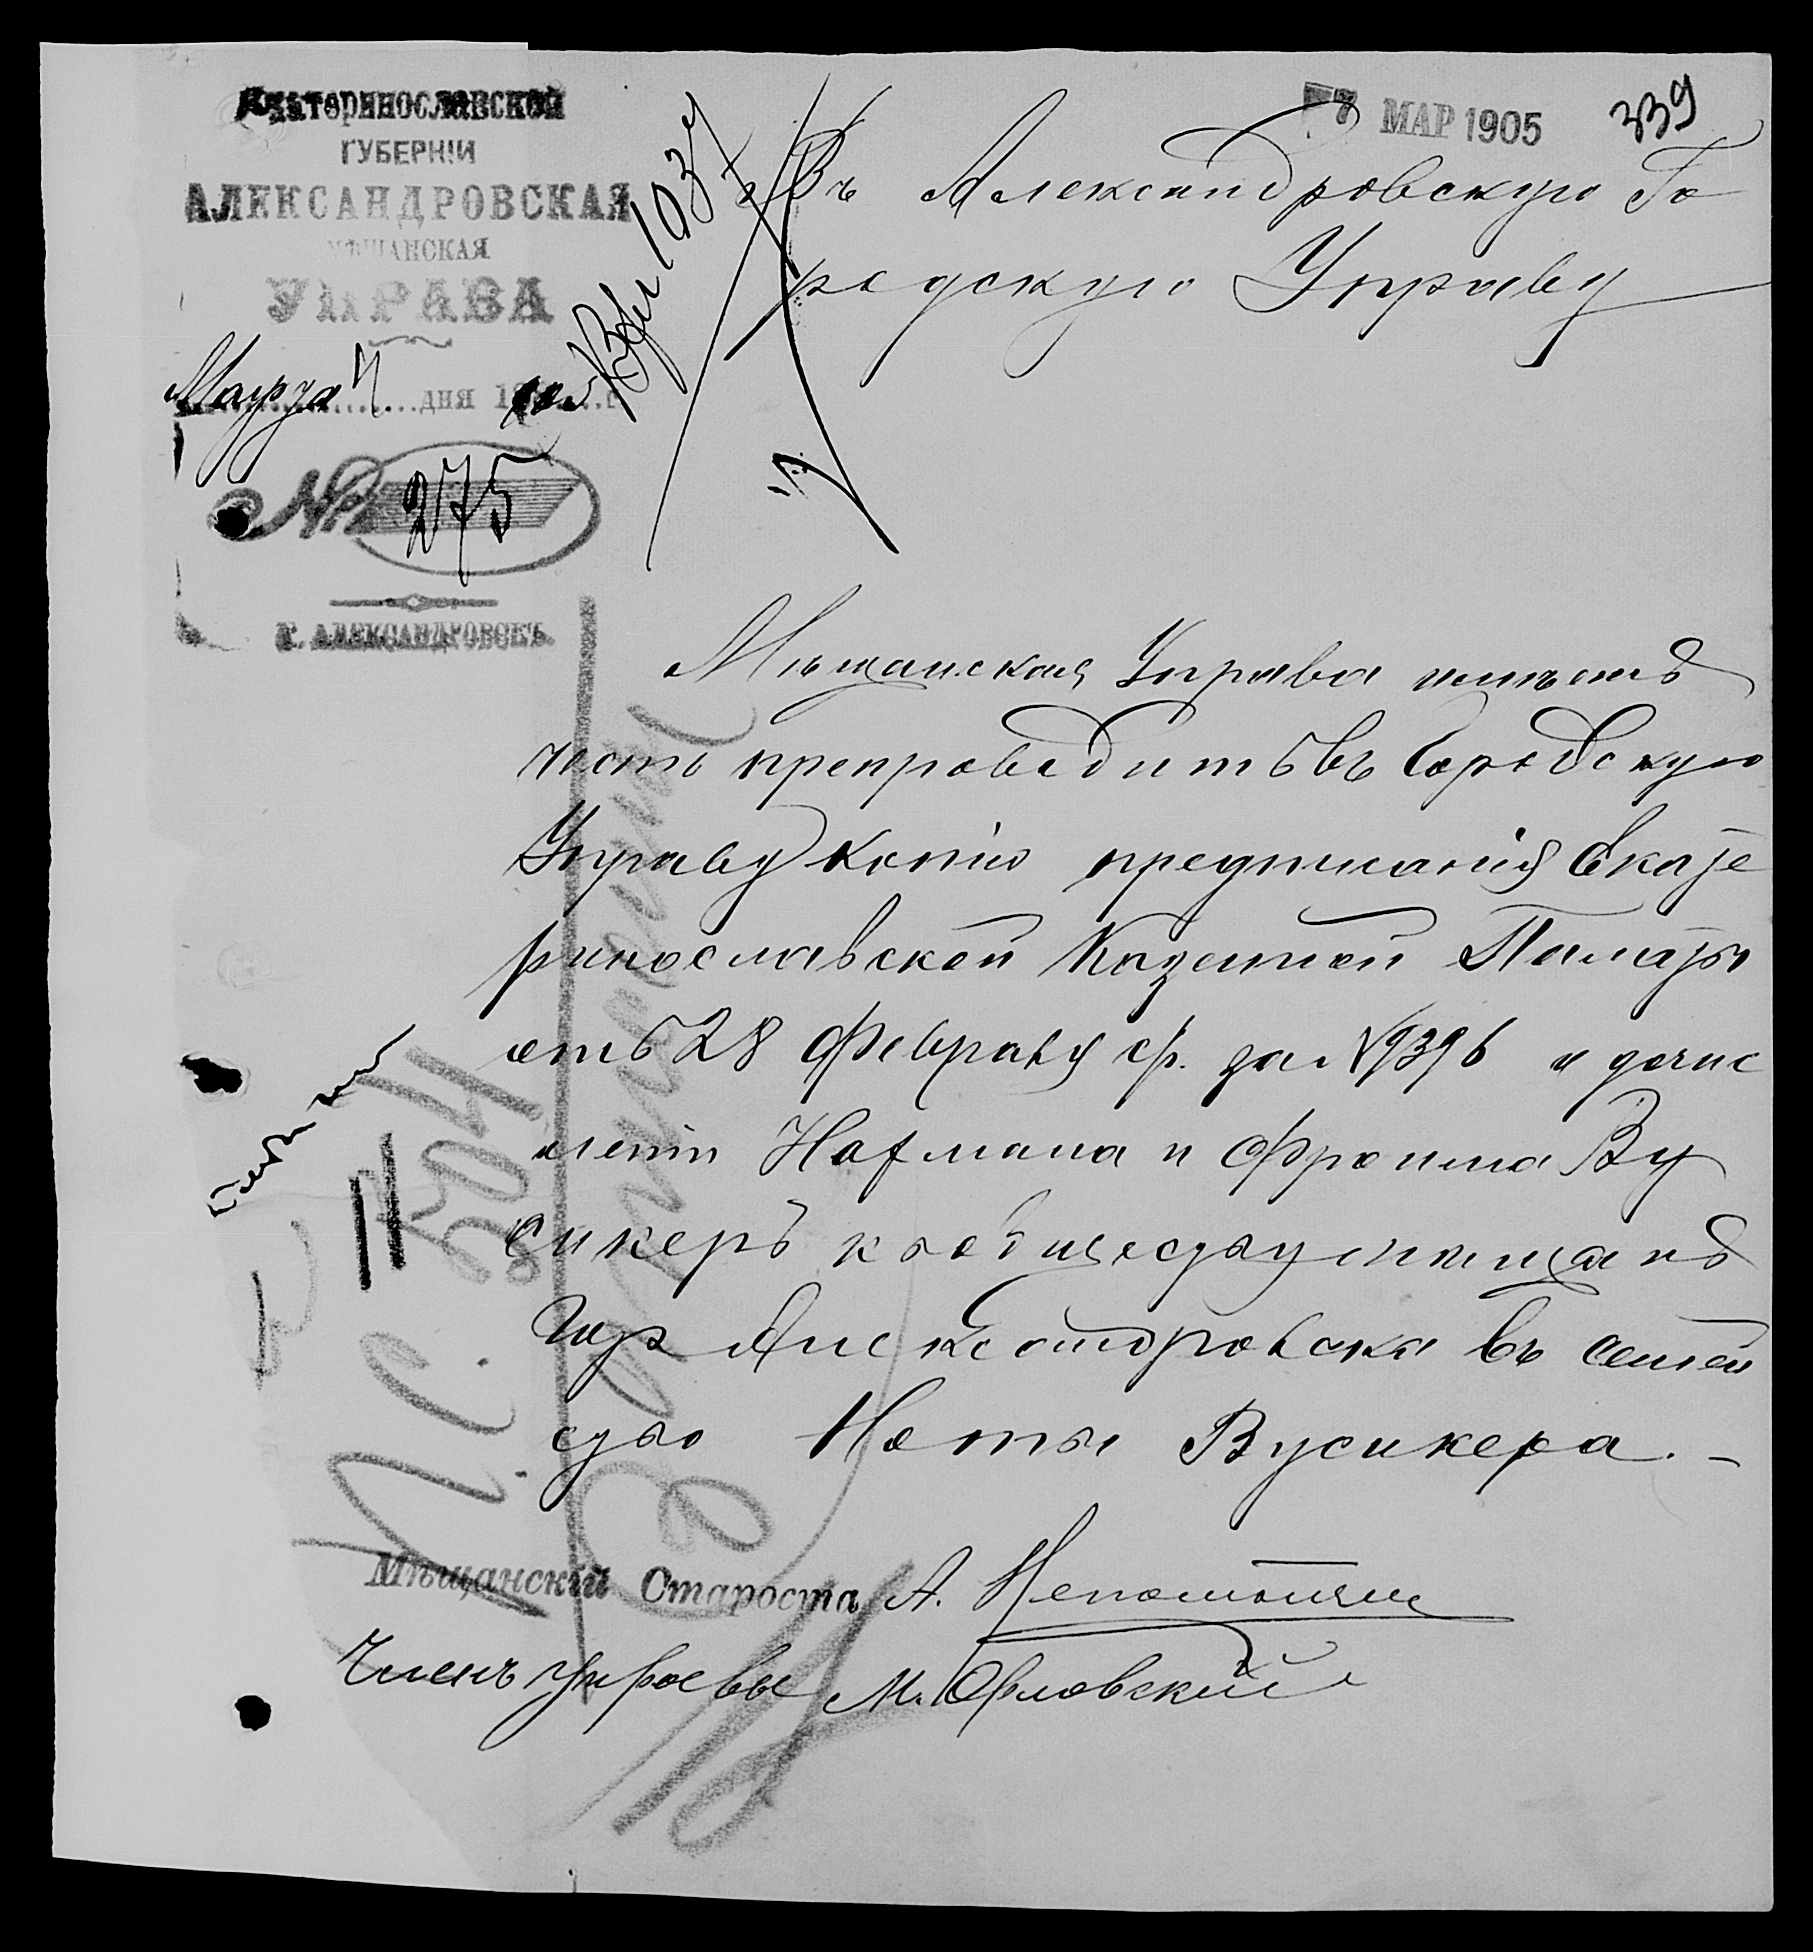 Екатеринославской
ГУБЕРНІИ
АЛЕКСАНДРОВСКАЯ
МѢЩАНСКАЯ
УПРАВА
Марта 7 дня 1905 г.
№ 275
Г. АЛЕКСАНДРОВСКЪ.
7 МАР 1905
339
Вх 1037
Въ Александровскую Го
родскую Управу
Мѣщанская Управа имѣетъ
честь препроводить въ Городскую
Управу копію предписанія Екате
ринославской Казенной Палаты
отъ 28 Февраля с/г. за № 9396 о дочис
леніи Нахмана и Фроима Ву
сикеръ к обществу мѣщанъ
гор Александровска въ семей
ствоНоты Вусикера. –
Мѣщанскій Староста А. Непомнящи
Членъ управы М. Орловскій